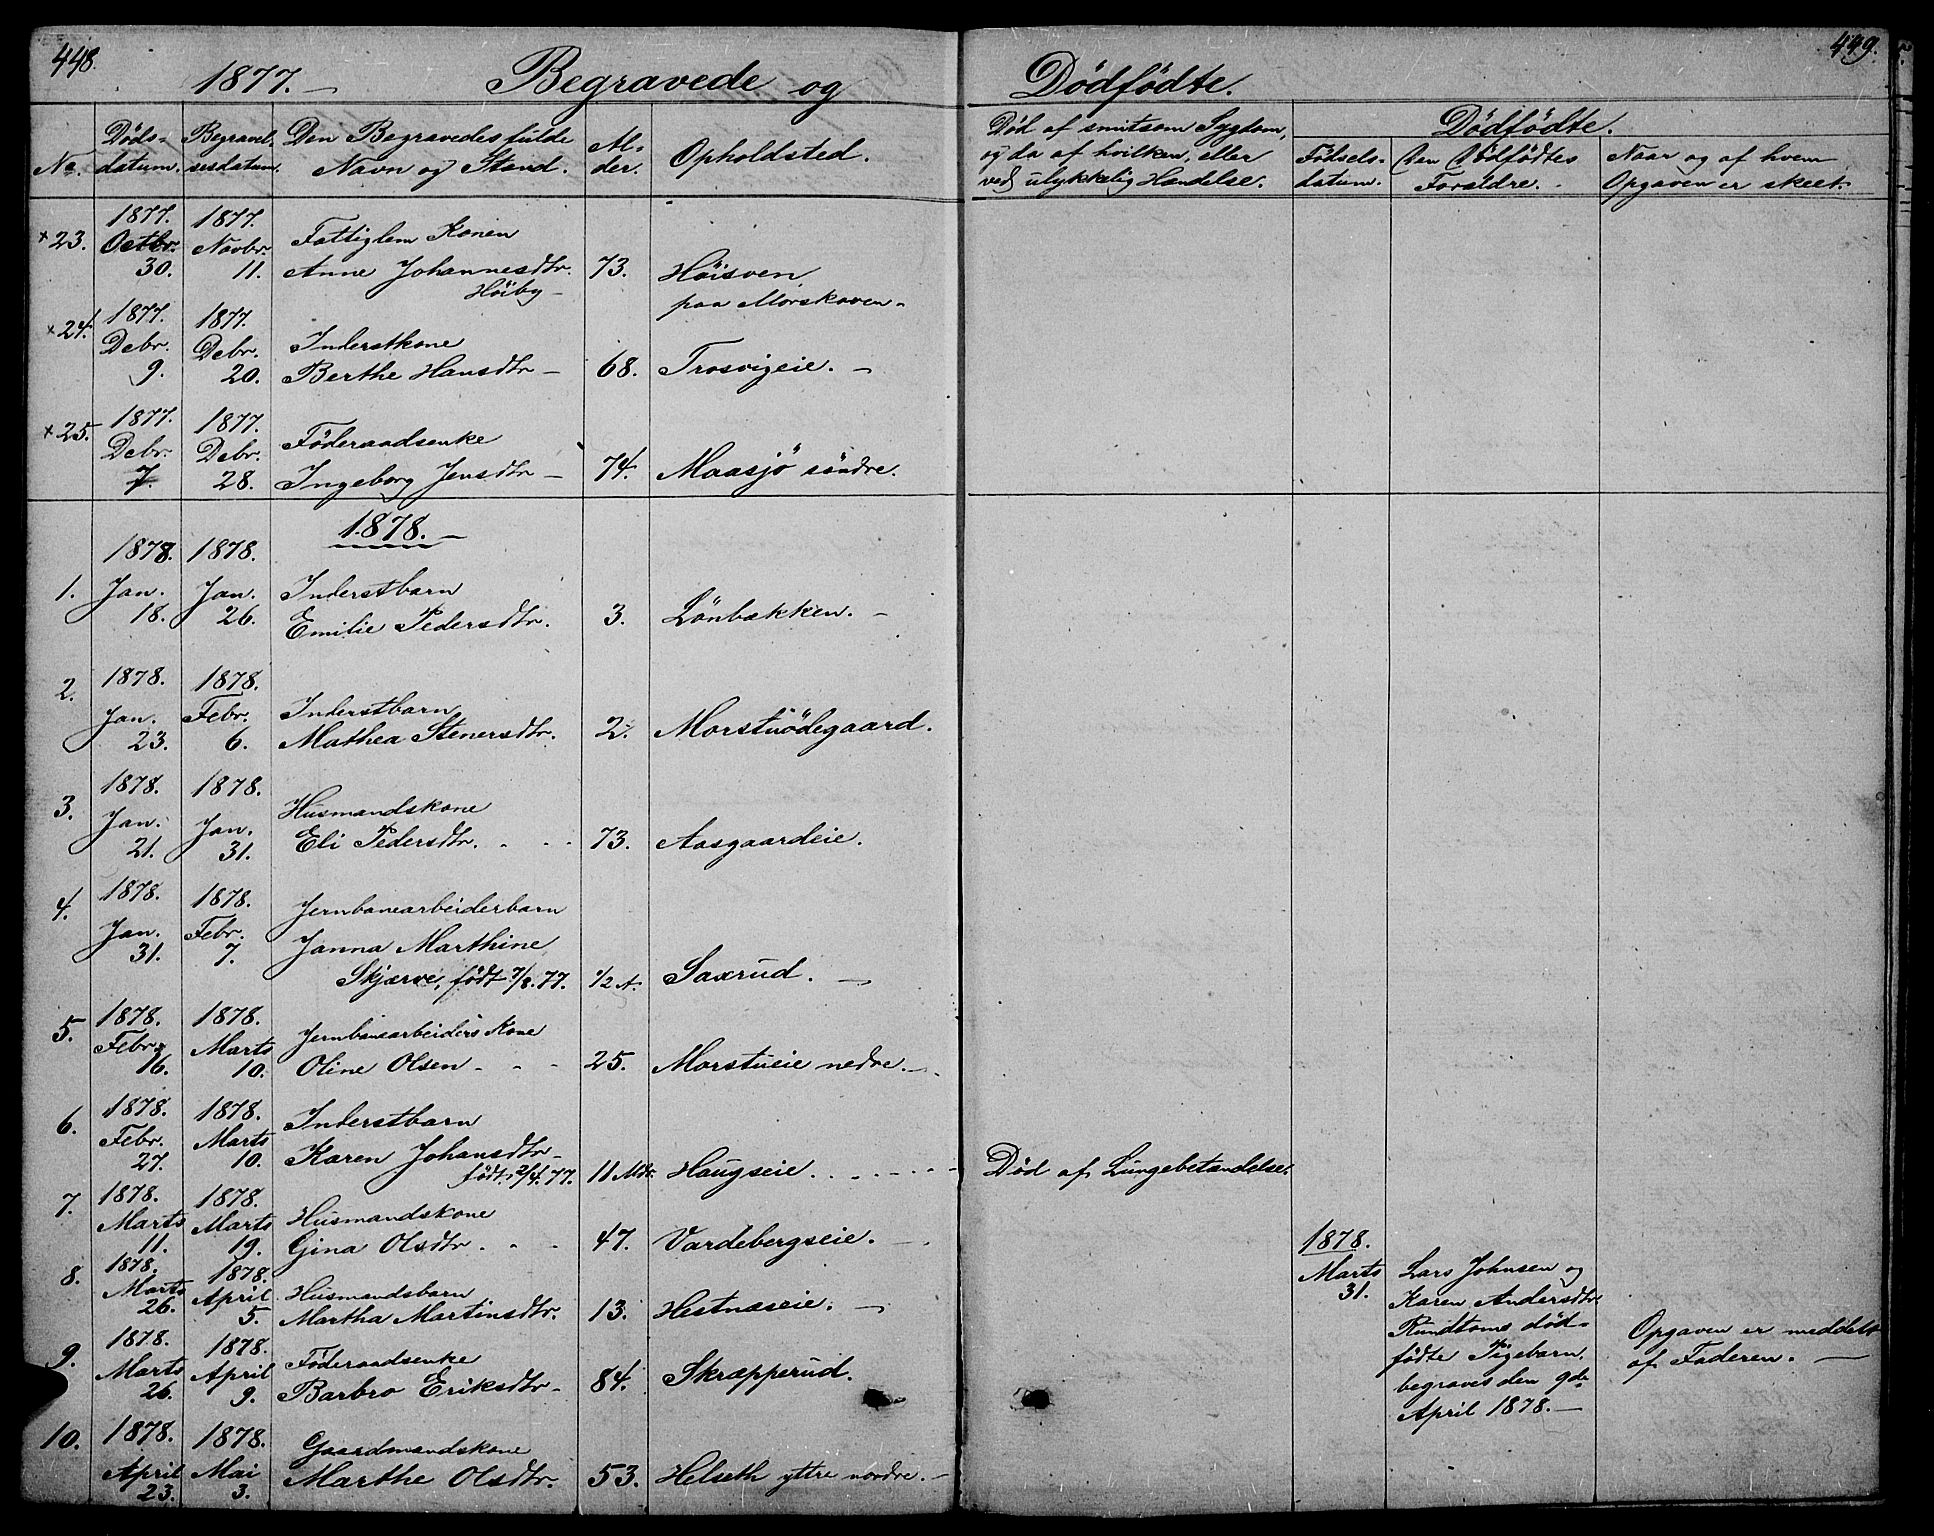 448.
1877. — Begravede og Dödfödte.
449.
No.
Döds-
datum.
Begravel-
sesdatum.
Den Begravedes fulde
Navn og Stand.
Al-
der.
Opholdsted.
Död af smitsom Sygdom,
og da af hvilken, eller
ved ulykkelig Hændelse.
Dödfödte.
Födsels-
datum.
Den Dödfödtes
Forældre.
Naar og af hvem
Opgaven er skeet.
× 23.
1877.
Octbr.
30.
1877.
Novbr.
11.
Fattiglem Konen
Anne Johannesdtr.
Höiby —
73.
Höisven
paa Morskoven —
× 24.
1877.
Debr.
9.
1877.
Debr.
20.
Inderstkone
Berthe Hansdtr —
68.
Trosvigeie. —
× 25.
1877.
Debr.
7.
1877.
Debr.
28.
Föderaadsenke
Ingeborg Jensdtr —
74.
Maasjö söndre.
1878. —
1.
1878.
Jan.
18.
1878.
Jan.
26.
Inderstbarn
Emilie Pedersdtr.
3.
Lönbækken. —
2.
1878.
Jan.
23.
1878.
Febr.
6.
Inderstbarn
Mathea Stenersdtr.
2.
Morstuödegaard.
3.
1878.
Jan.
21.
1878.
Jan.
31.
Husmandskone
Eli Pedersdtr. - - -
73.
Aasgaardeie.
4.
1878.
Jan.
31.
1878.
Febr.
7.
Jernbanearbeiderbarn
Janna Marthine
Skjærve, födt 7/8. 77.
1/2 A.
Saxrud. —
5.
1878.
Febr.
16.
1878.
Marts
10.
Jernbanearbeiders Kone
Oline Olsen - - -
25.
Morstueie nedre. —
6.
1878.
Febr.
27.
1878.
Marts
10.
Inderstbarn
Karen Johansdtr —
födt 2/4. 77.
11 Mdr.
Haugseie . . . . - - -
Död af Lungebetændelse.
7.
1878.
Marts
11.
1878.
Marts
19.
Husmandskone
Gina Olsdtr. - -
47.
Vardebergseie. —
8.
1878.
Marts
26.
1878.
April
5.
Husmandsbarn
Martha Martinsdtr.
13.
Hestnæseie. —
1878.
Marts
31.
Lars Johnsen og
Karen Andersdtr.
Rundtoms död-
födte Pigebarn,
begraves den 9de
April 1878. —
Opgaven er meddelt
af Faderen. —
9.
1878.
Marts
26.
1878.
April
9.
Föderaadsenke
Barbro Eriksdtr —
84.
Skræpperud.
10.
1878.
April
23.
1878.
Mai
3.
Gaardmandskone
Marthe Olsdtr.
53.
Helseth yttre nordre. —